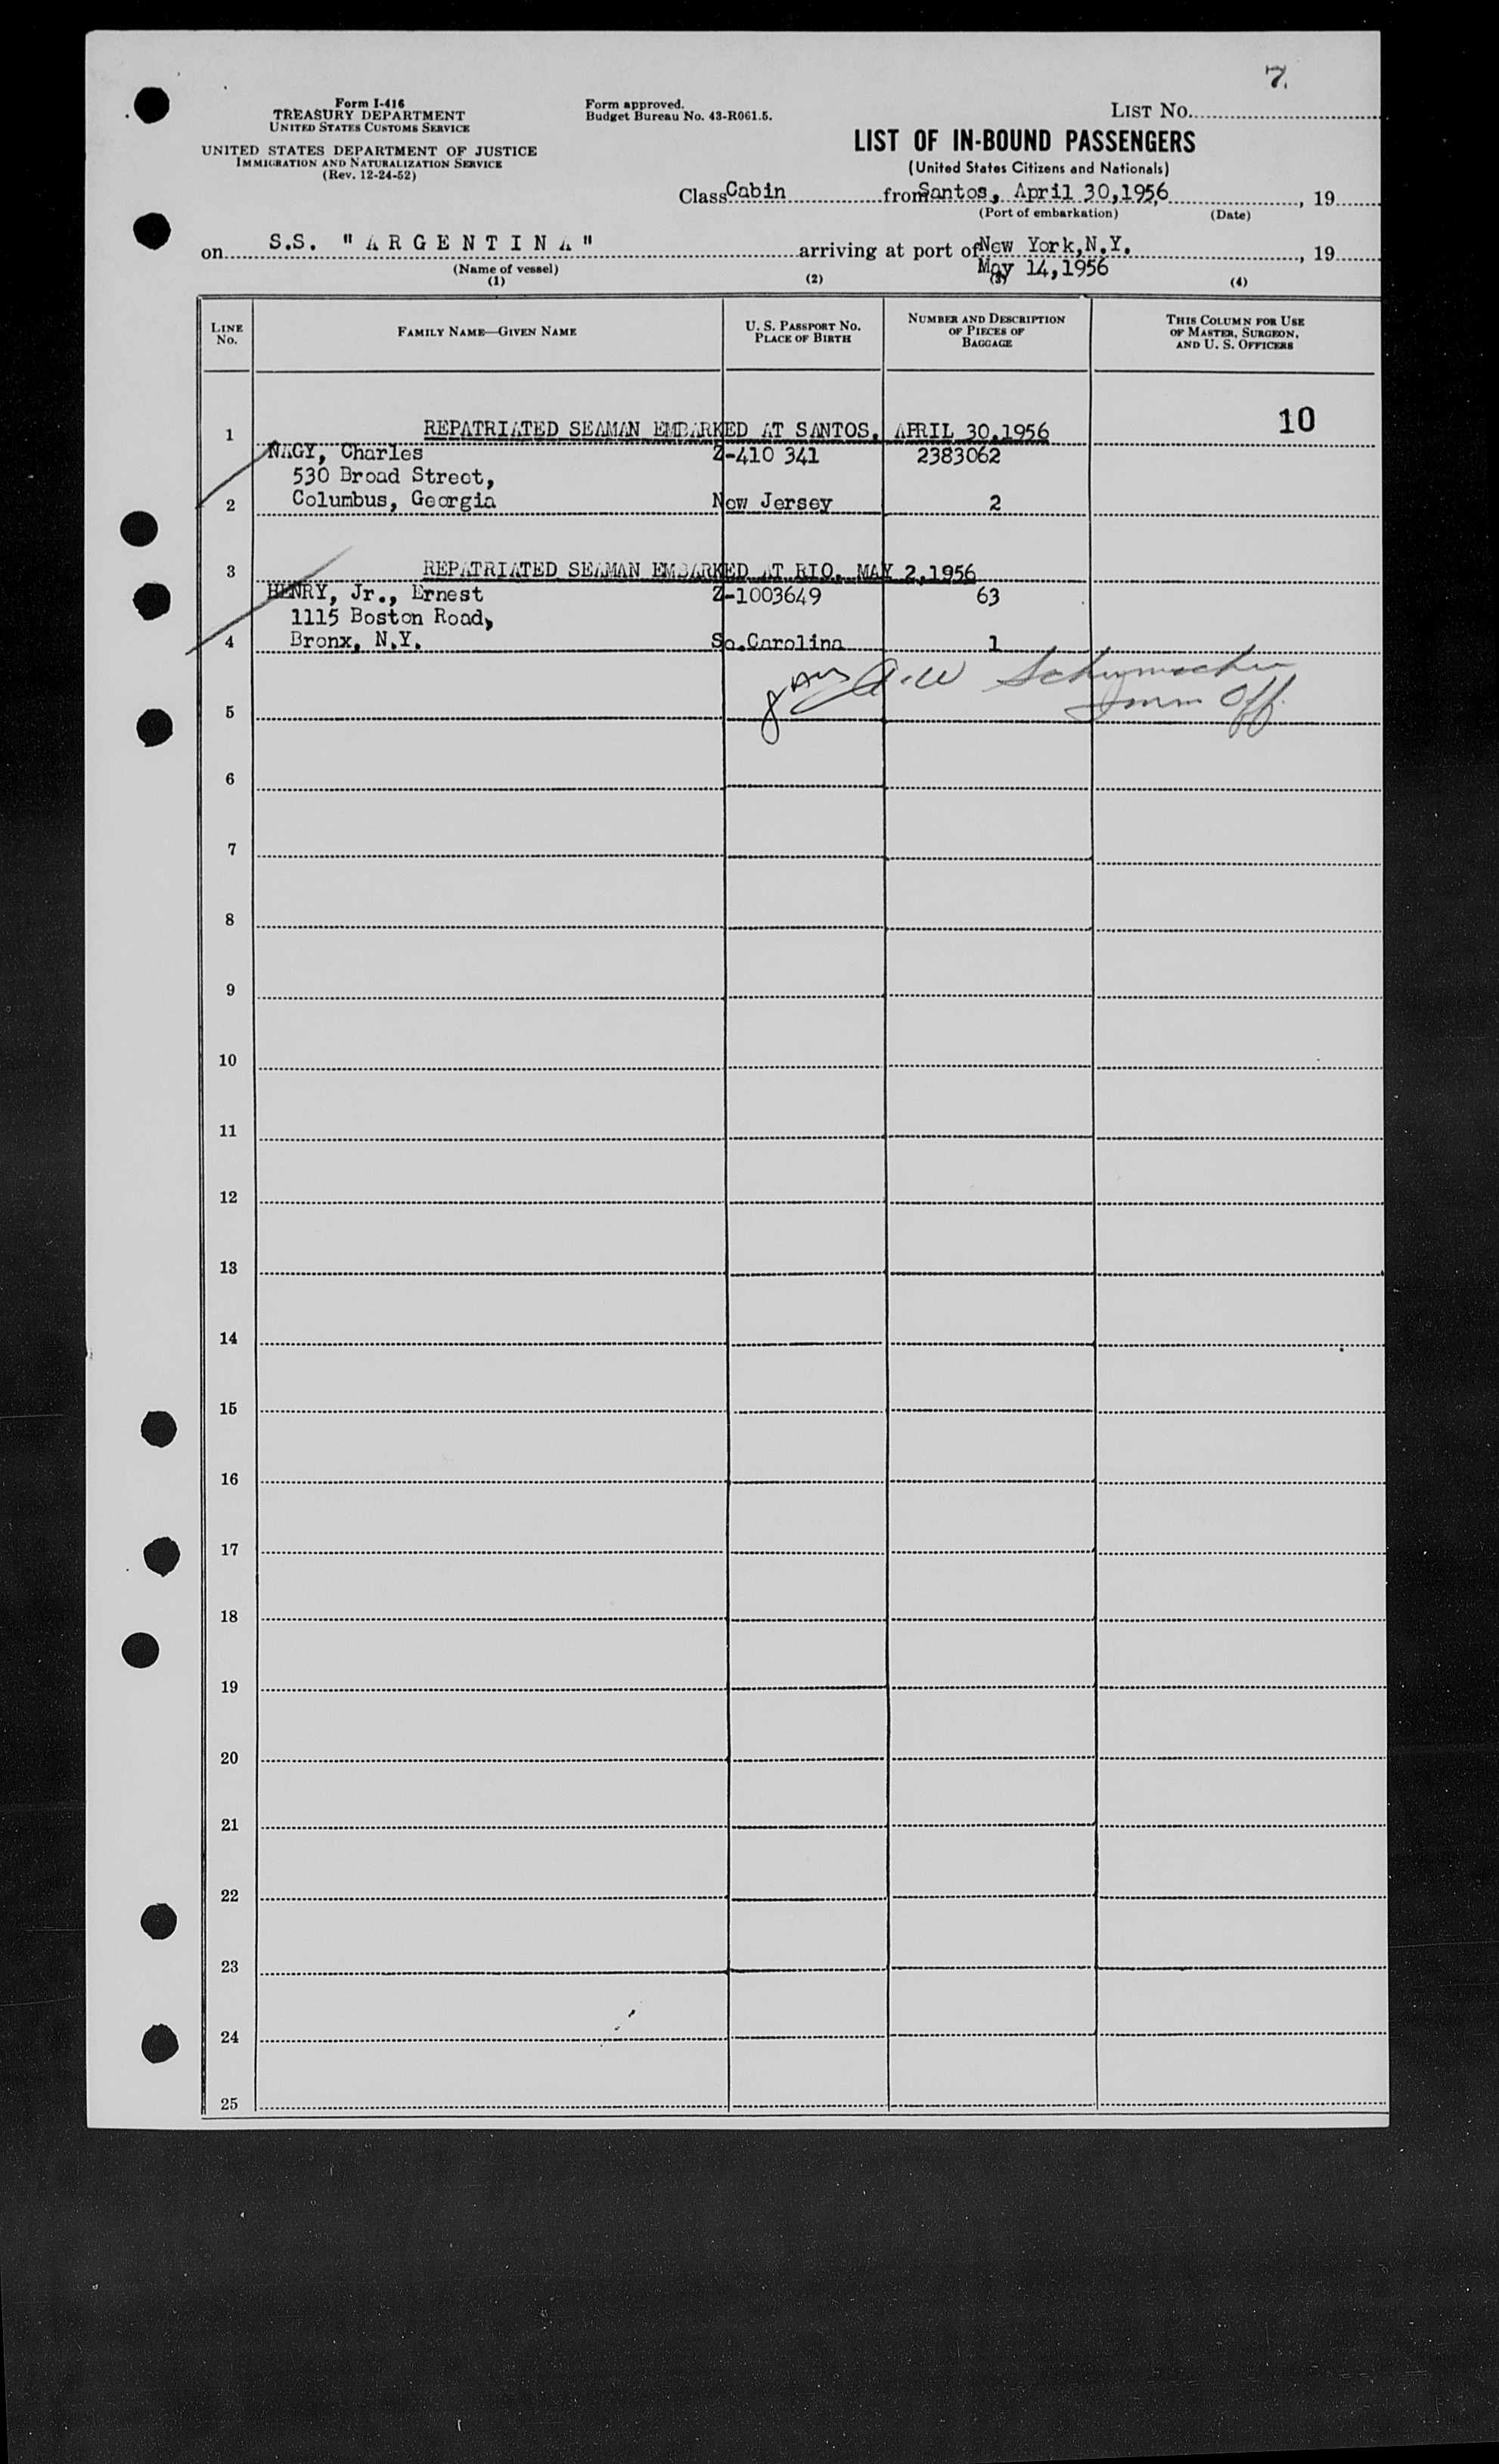 7.
Form I-416
TREASURY DEPARTMENT
UNITED STATES CUSTOMS SERVICE
UNITED STATES DEPARTMENT OF JUSTICE
IMMIGRATION AND NATURALIZATION SERVICE
(Rev. 12-24-52)
Form approved.
Budget Bureau No. 43-R061.5.
LIST No.
LIST OF IN-BOUND PASSENGERS
(United States Citizens and Nationals)
Class Cabin from Santos, April 30,1956, 19
(Port of embarkation) (Date)
on S.S. "ARGENTINA" arriving at port of New York,N.Y., 19
(Name of vessel) May 14,1956
(1) (2) (3) (4)
LINE No. FAMILY NAME—GIVEN NAME U. S. PASSPORT No. PLACE OF BIRTH NUMBER AND DESCRIPTION OF PIECES OF BAGGAGE THIS COLUMN FOR USE OF MASTER, SURGEON, AND U. S. OFFICERS
10
1 REPATRIATED SEAMAN EMBARKED AT SANTOS, APRIL 30,1956
NAGY, Charles Z-410 341 2383062
530 Broad Street,
2 Columbus, Georgia New Jersey 2
3 REPATRIATED SEAMAN EMBARKED AT RIO, MAY 2,1956
HENRY, Jr., Ernest Z-1003649 63
1115 Boston Road,
4 Bronx, N.Y. So.Carolina 1
A.W Schumacher
Imm Off.
5
6
7
8
9
10
11
12
13
14
15
16
17
18
19
20
21
22
23
24
25